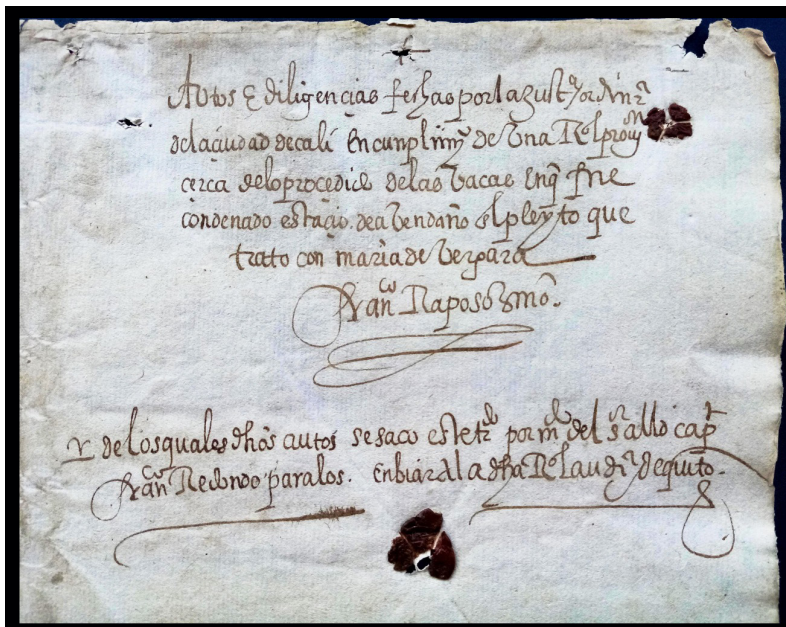 Autos E diligencias fechas por la Just.ª ordin.ª
de la ciudad de cali En cunplimy.º de Una Rˡ prouy.ᵒⁿ
cerca de lo procedido de las bacas En q̃ fue
condenado estacio. de abendaño El pleyto que
trato con maria de bergara
Franᶜᵒ Raposo
Y de los quales dhos autos se saco este trᵈᵒ por mᵈᵒ del sʳ allde capᵗ
Franᶜᵒ Redondo para los. Enbiar A la dha Rˡ audiª de quito.